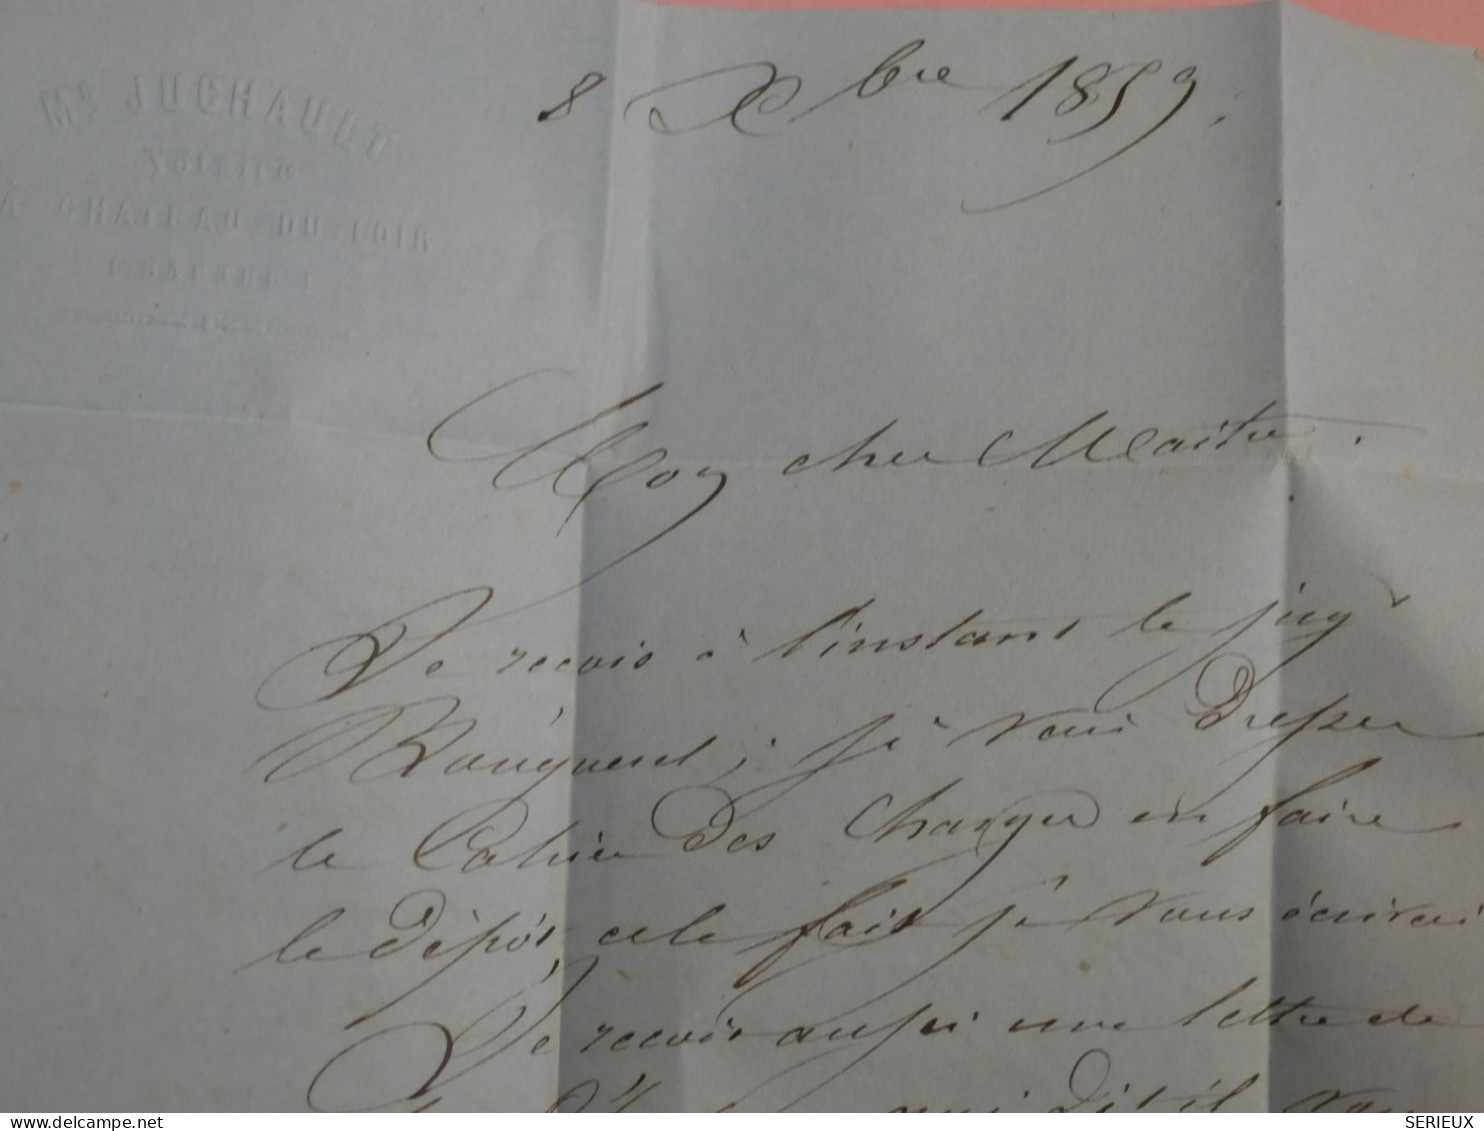 Me JUCHAULT
Notaire
À CHÂTEAU-DU-LOIR
(SARTHE)
8 Xbre 1859.
Mon cher Maître.
Je reçois à l'instant le jugt
je vais dresser
le Cahier des Charges en faire
le dépôt cela fait je vous écrirai
Je reçois aussi une lettre de
dit il
delcampe.net
SERIEUX